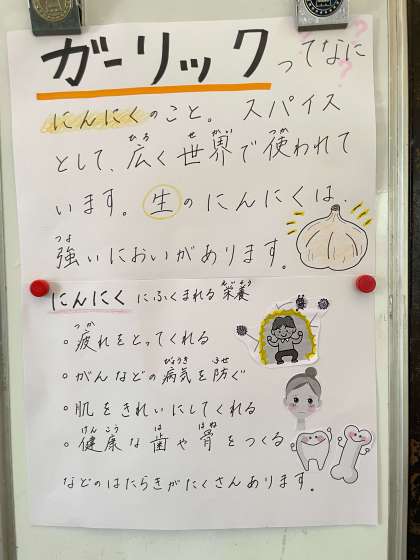 ガーリックってなに
にんにくのこと。スパイス
として、広く世界で使われて
います。生のにんにくは、
強いにおいがあります。
にんにくにふくまれる栄養
疲れをとってくれる
がんなどの病気を防ぐ
肌をきれいにしてくれる
健康な歯や骨をつくる
などのはたらきがたくさんあります。